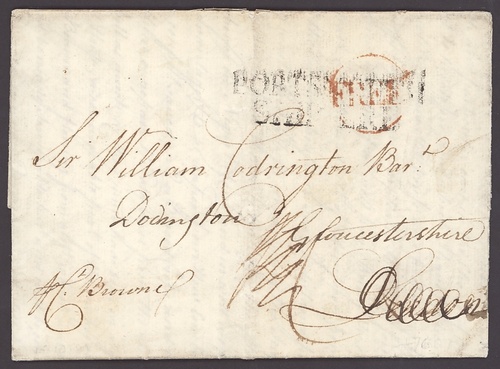 PORTSMOUTH
SHIP LRE
FREE
Sir William Codrington Bar.t
Dodington
Gloucestershire
London
H. Browne